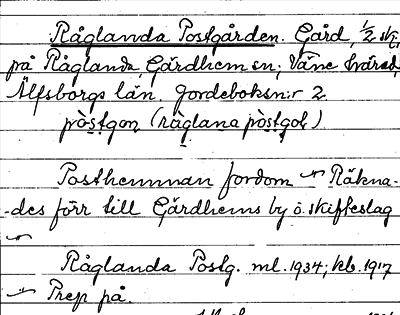 Råglanda Postgården. Gård, 1/2 skt.
på Råglanda, Gärdhem sn; Väne härad,
Älfsborgs län. Jordeboksn:r 2.
pòstgoɳ (ràglana pòstgoɳ)
Posthemman fordom Räkna-
-des förr till Gärdhems by ö. skifteslag
Råglanda Postg. ml. 1934; kb. 1917
Prep på.